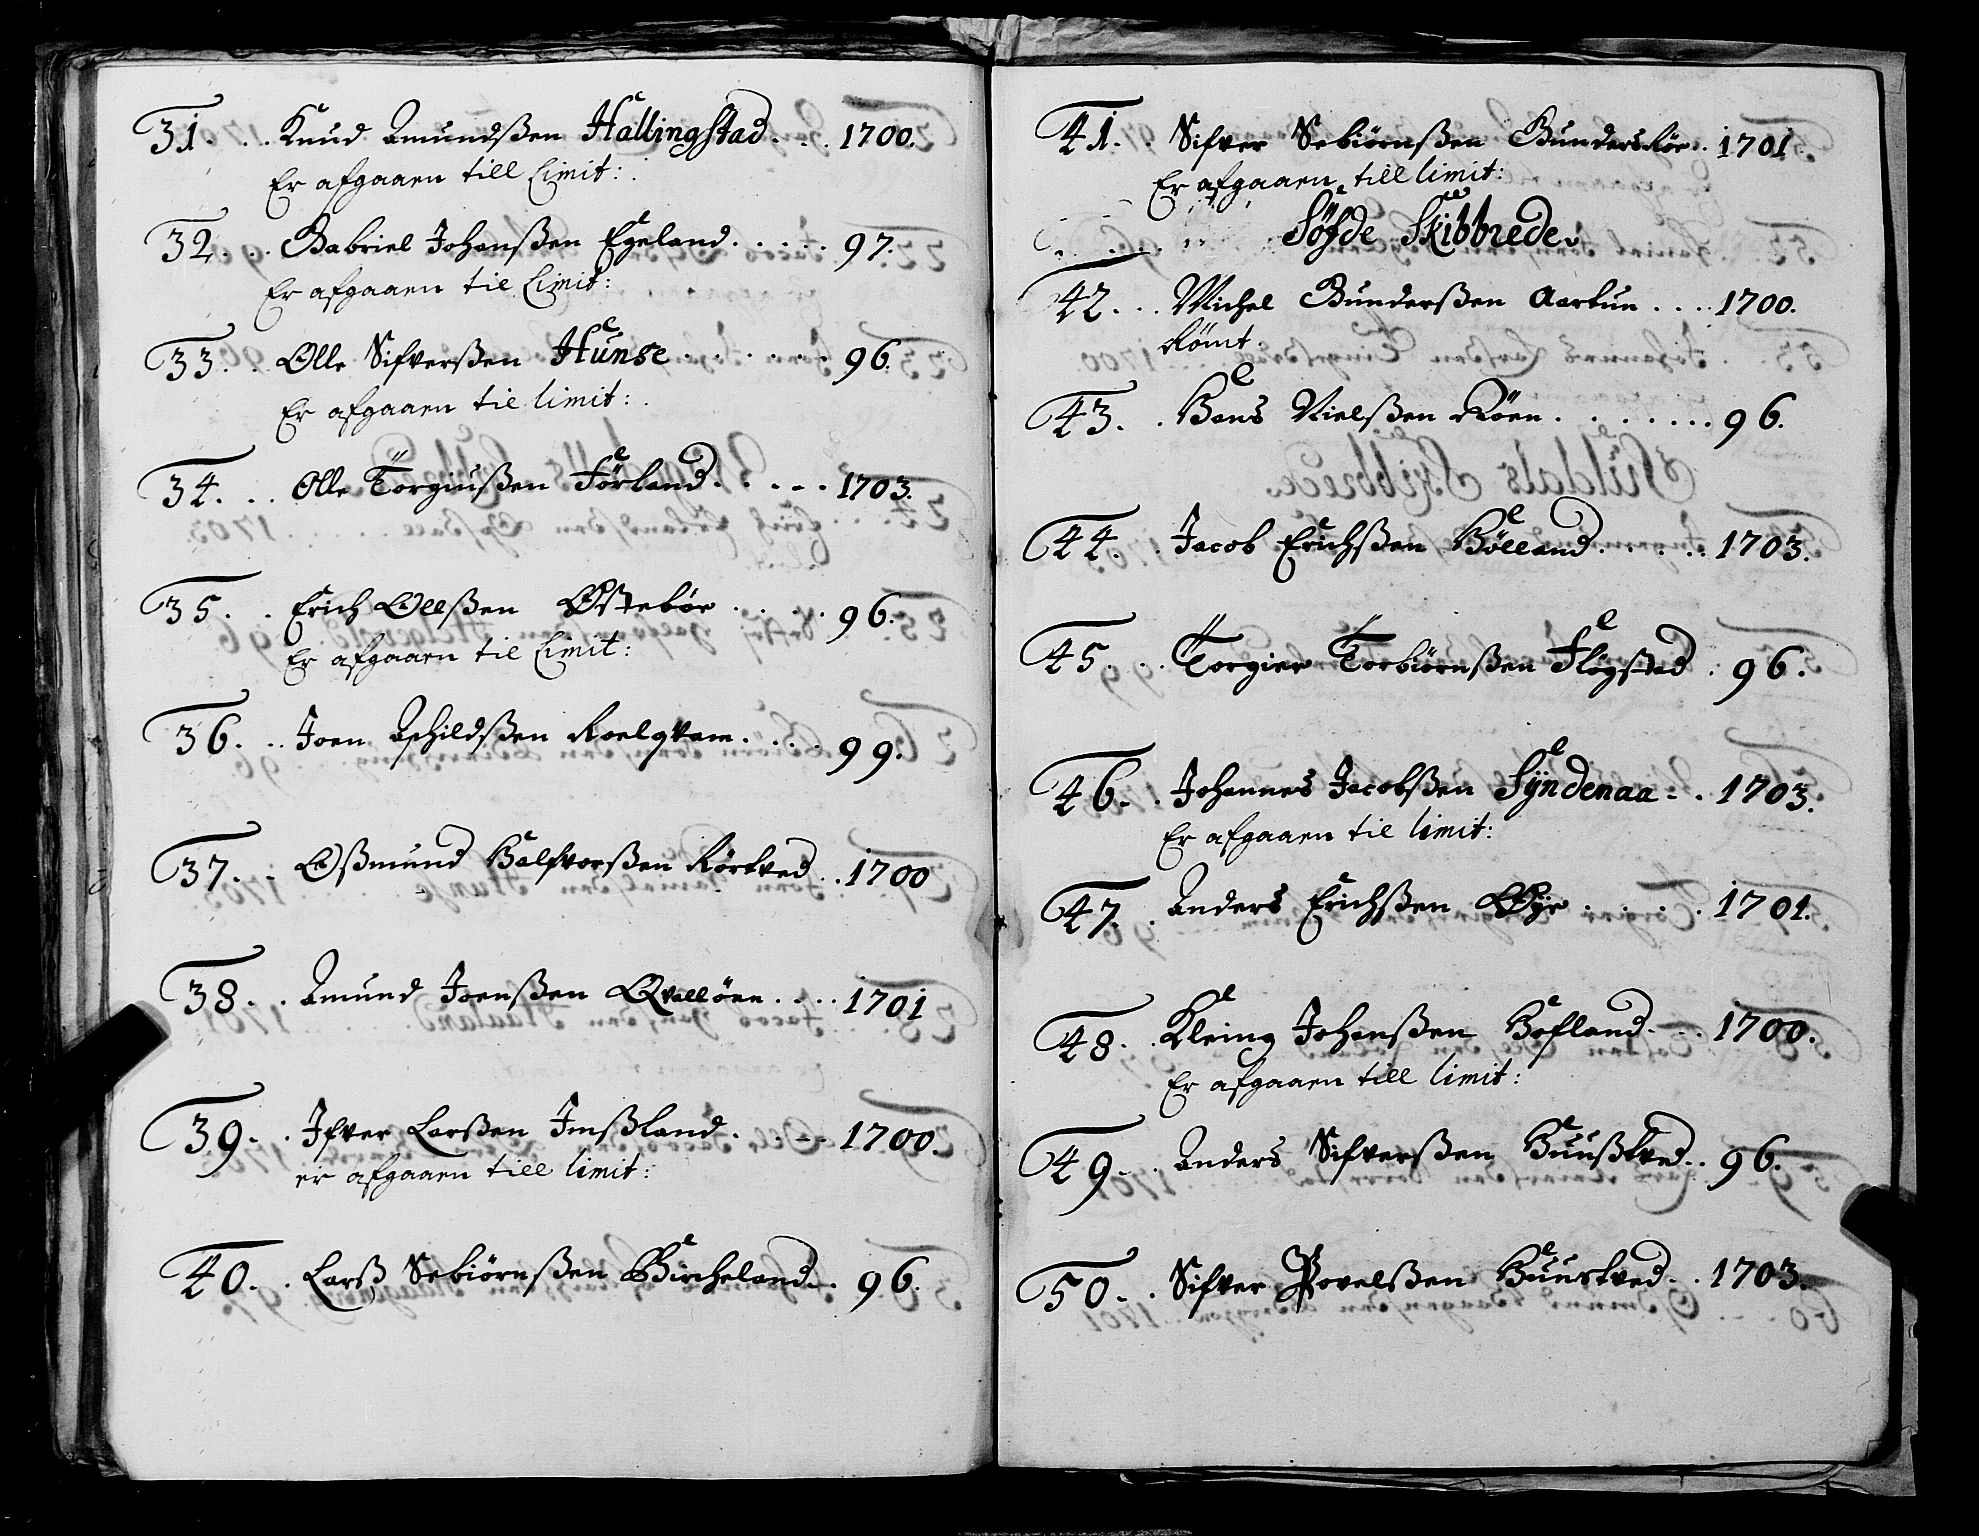 31. . . Knud Amundsßen Hallingstad. . . 1700.
Er afgaaen till Limit: .
32. . . Gabriel Johansßen Egeland. . . . . 97.
Er afgaaen til Limit:
33. . Olle Sifversßen Hunse . . . . . . 96.
Er afgaaen til limit: .
34. . . Olle Torgiusßen Förland. . . . . 1703.
35. . . Erich Ollsßen Østebör . . . . 96.
Er afgaaen til Limit:
36. . . Joen Aschildsßen Roelqvam. . . . 99.
37. . Oßmund Halfvorsßen Rörtved. . 1700
38. . . Amund Joensßen Qvallöen. . . . 1701
39. . . Ifver Larsßen Imßland. . . . 1700.
er afgaaen till limit:
40. . . Larß Sebiörnsßen Bircheland. . 96.
41. . . Sifver Sebiörnsßen Gunderskör. . 1701.
Er afgaaen till limit:
Söfde Skibbrede.
42. . . Michel Gundersßen Aartun . . . . 1700.
Römt.
43. . Hans Nielsßen Röen. . . . . . . 96.
44. . . Jacob Erichsßen Hölland. . . . . 1703.
45. . . Torgier Torbiörnsßen Flögstad . 96.
46. . . Johannes Jacobsßen Sÿndenaa . . 1703.
Er afgaaen til limit:
47. . Anders Erichsßen Øÿr . . . . 1701.
48. . . Kleing Johansßen Hofland. . . 1700.
Er afgaaen till limit:
49. . . Anders Sifversßen Huußtved. . 96.
50. . . Sifver Povelsßen Huustved. . 1703.